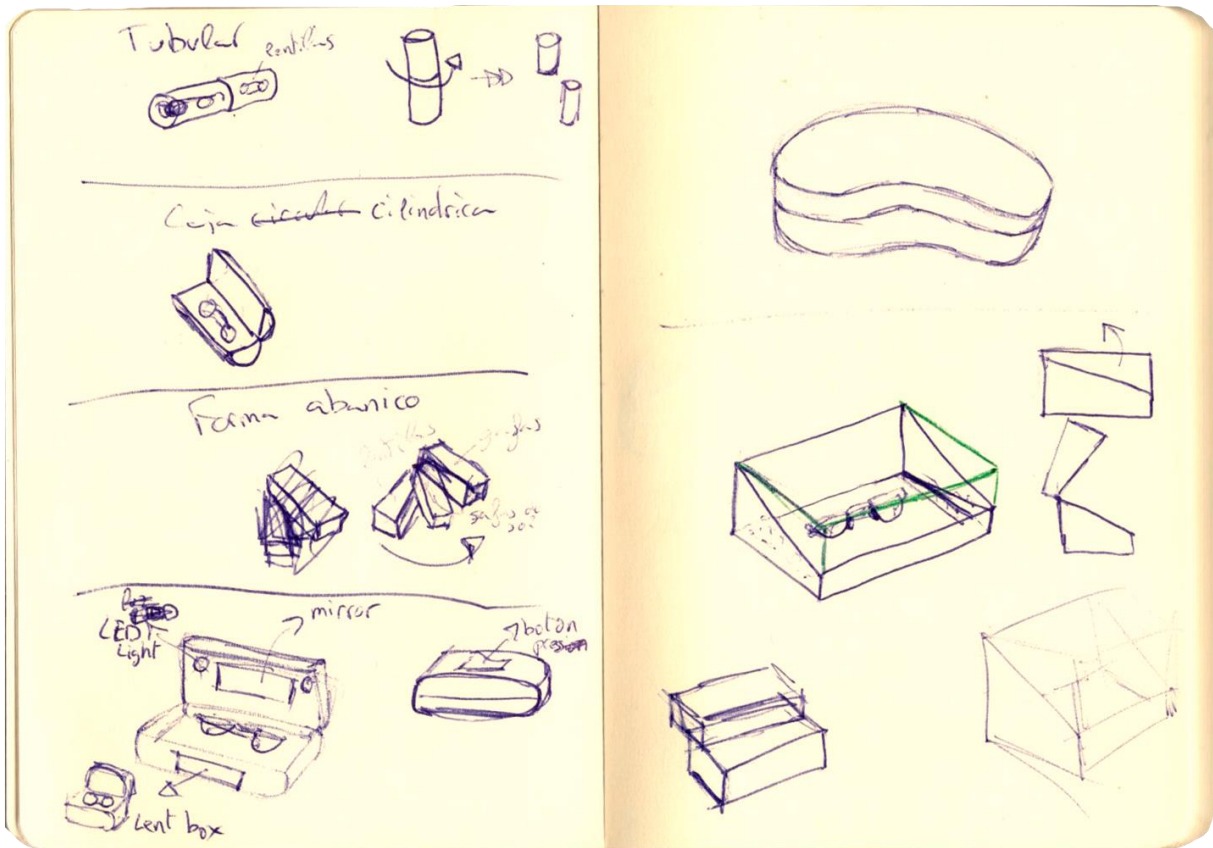 Tubular
lentillas
Caja circular cilíndrica
Forma abanico
lentillas
gafas
gafas de
sol
mirror
LEDT
Light
boton
presion
Lent box